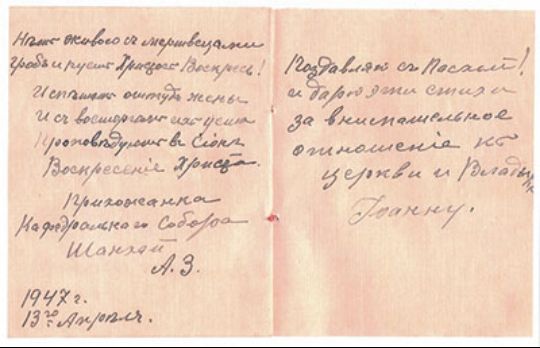 Нѣтъ живого съ мертвецами
Гробъ и пустъ Христосъ Воскресъ!
И спѣшатъ оттуда жены
И съ восторгомъ ихъ уста
Проповѣдуютъ въ Сіонѣ
Воскресеніе Христа.
Прихожанка
Кафедральнаго Собора
Шанхай
А. З.
1947 г.
13го Апрѣля.
Поздравляю съ Пасхой!
и дарю эти стихи
за внимательное
отношеніе къ
церкви и Владыкѣ
Іоанну.